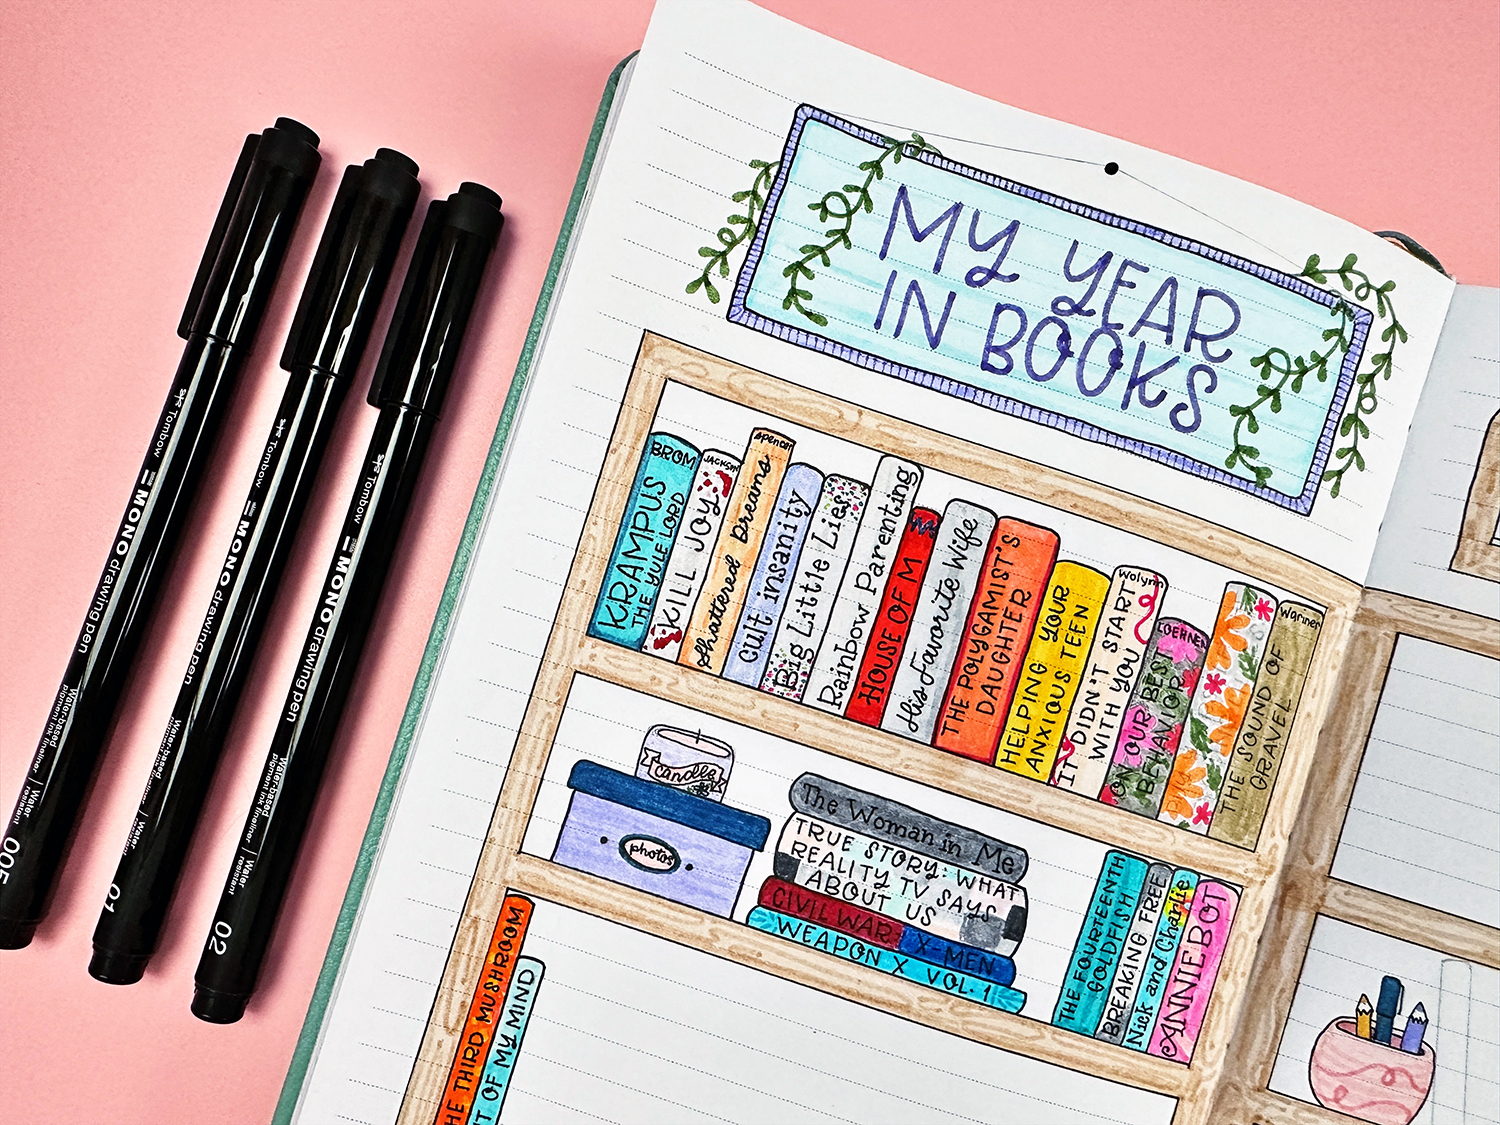 Tombow
MONO drawing pen
Water-based
pigment ink fineliner
Water
resistant
005
Tombow
MONO drawing pen
Water-based
pigment ink fineliner
Water
01
Tombow
MONO drawing pen
Water-based
pigment ink fineliner
Water
resistant
02
MY YEAR
IN BOOKS
BROM
KRAMPUS
THE YULE LORD
JACKSON
KILL JOY
Spencer
Shattered Dreams
Cult insanity
Big Little Lies
Rainbow Parenting
HOUSE OF M
His Favorite Wife
THE POLYGAMIST'S
DAUGHTER
HELPING YOUR
ANXIOUS TEEN
Wolynn
IT DIDN'T START
WITH YOU
ON OUR BEST
BEHAVIOR
Wariner
THE SOUND OF
GRAVEL
candles
photos
The Woman in Me
TRUE STORY: WHAT
REALITY TV SAYS
ABOUT US
CIVIL WAR X-MEN
WEAPON X VOL. 1
THE FOURTEENTH
GOLDFISH
BREAKING FREE
Nick and Charlie
ANNIEBOT
THE THIRD MUSHROOM
OF MY MIND